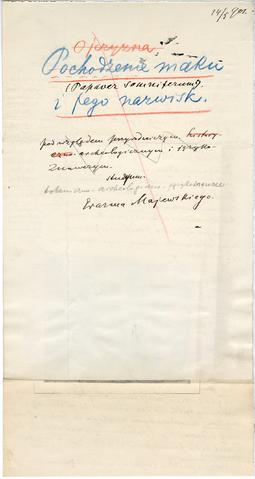 14/5 901.
Ojczyzna
Pochodzenie maku
(Papaver somniferum)
i jego nazwisk.
pod względem przyrodniczym history
czno-archeologicznym i języko-
znawczym.
studyum
botaniczno-archeologiczno-językoznawcze
Erazma Majewskiego.